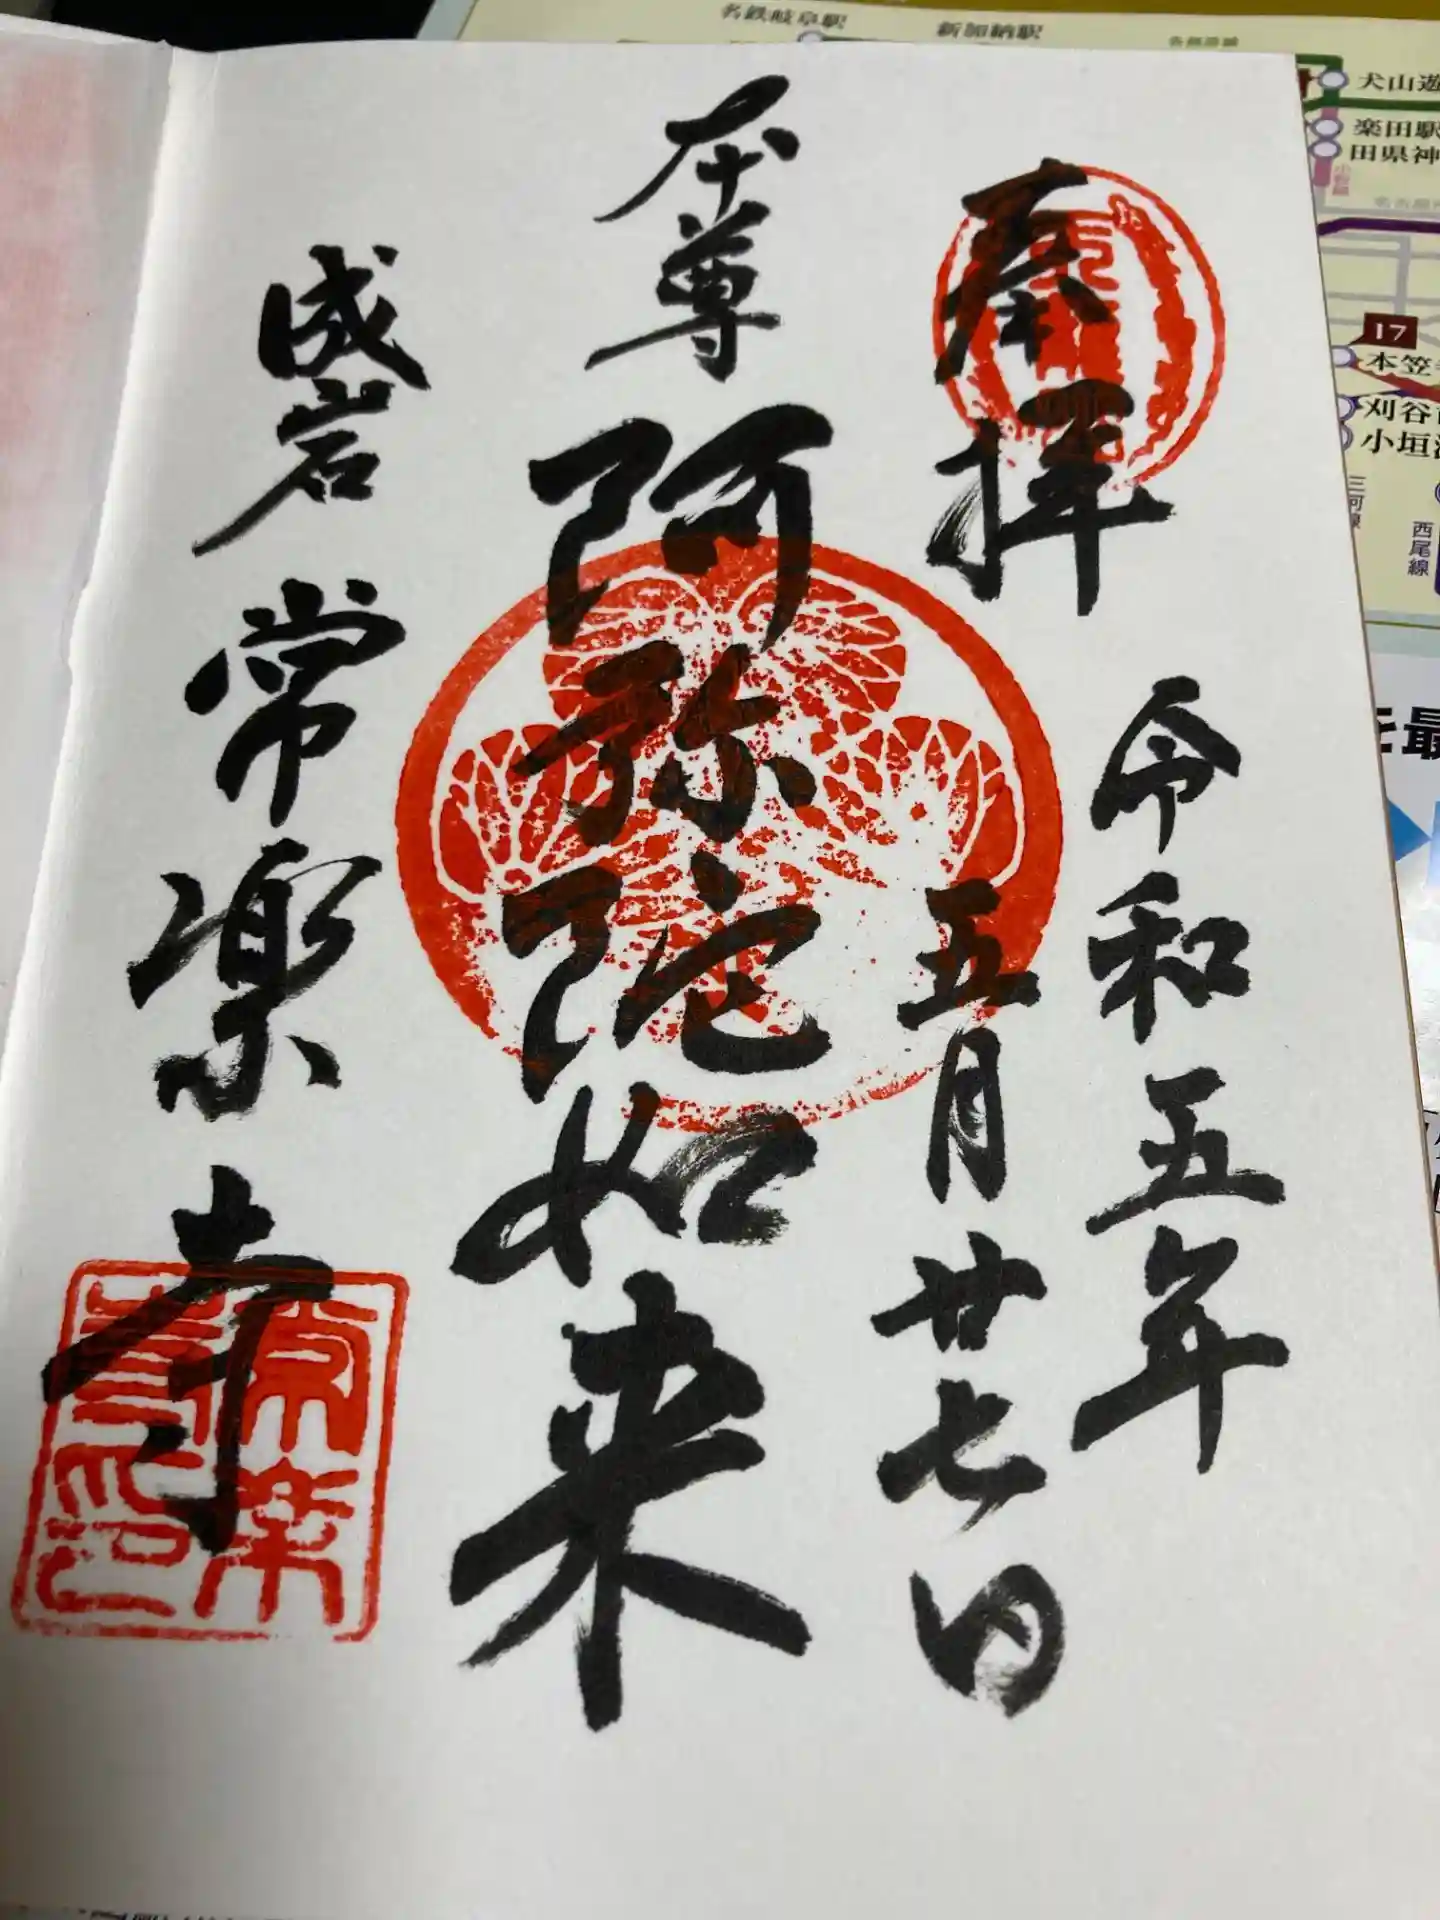 奉拝
令和五年
五月廿七日
本尊
阿弥陀如来
成岩
常楽寺
常楽
寺印
名鉄岐阜駅
新加納駅
各務原線
犬山遊
楽田駅
田県神
小牧線
17
本笠寺
刈谷市
三河線
西尾線
を最